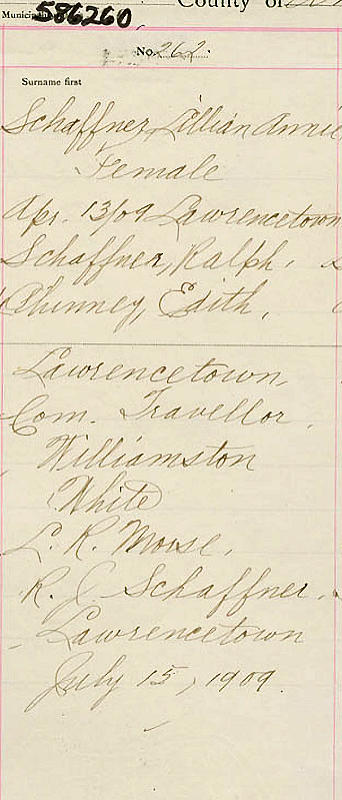 County of
Municipality
586260
No. 262.
Surname first
Schaffner, Lillian Annie
Female
Apr. 13/09 Lawrencetown
Schaffner, Ralph.
Phinney, Edith,
Lawrencetown,
Com. Travellor.
Williamston
White
L. R. Morse.
R. J. Schaffner.
Lawrencetown
July 15, 1909.